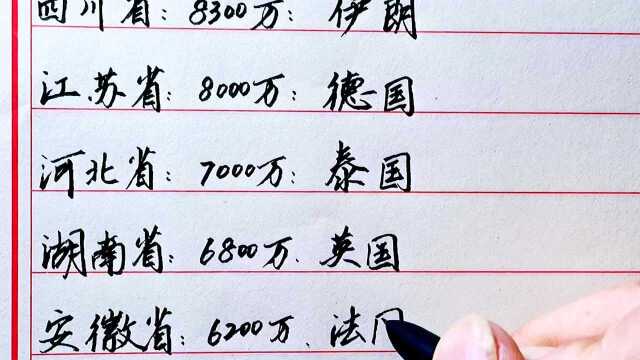 四川省：8300万：伊朗
江苏省：8000万：德国
河北省：7000万：泰国
湖南省：6800万.英国
安徽省：6200万.法